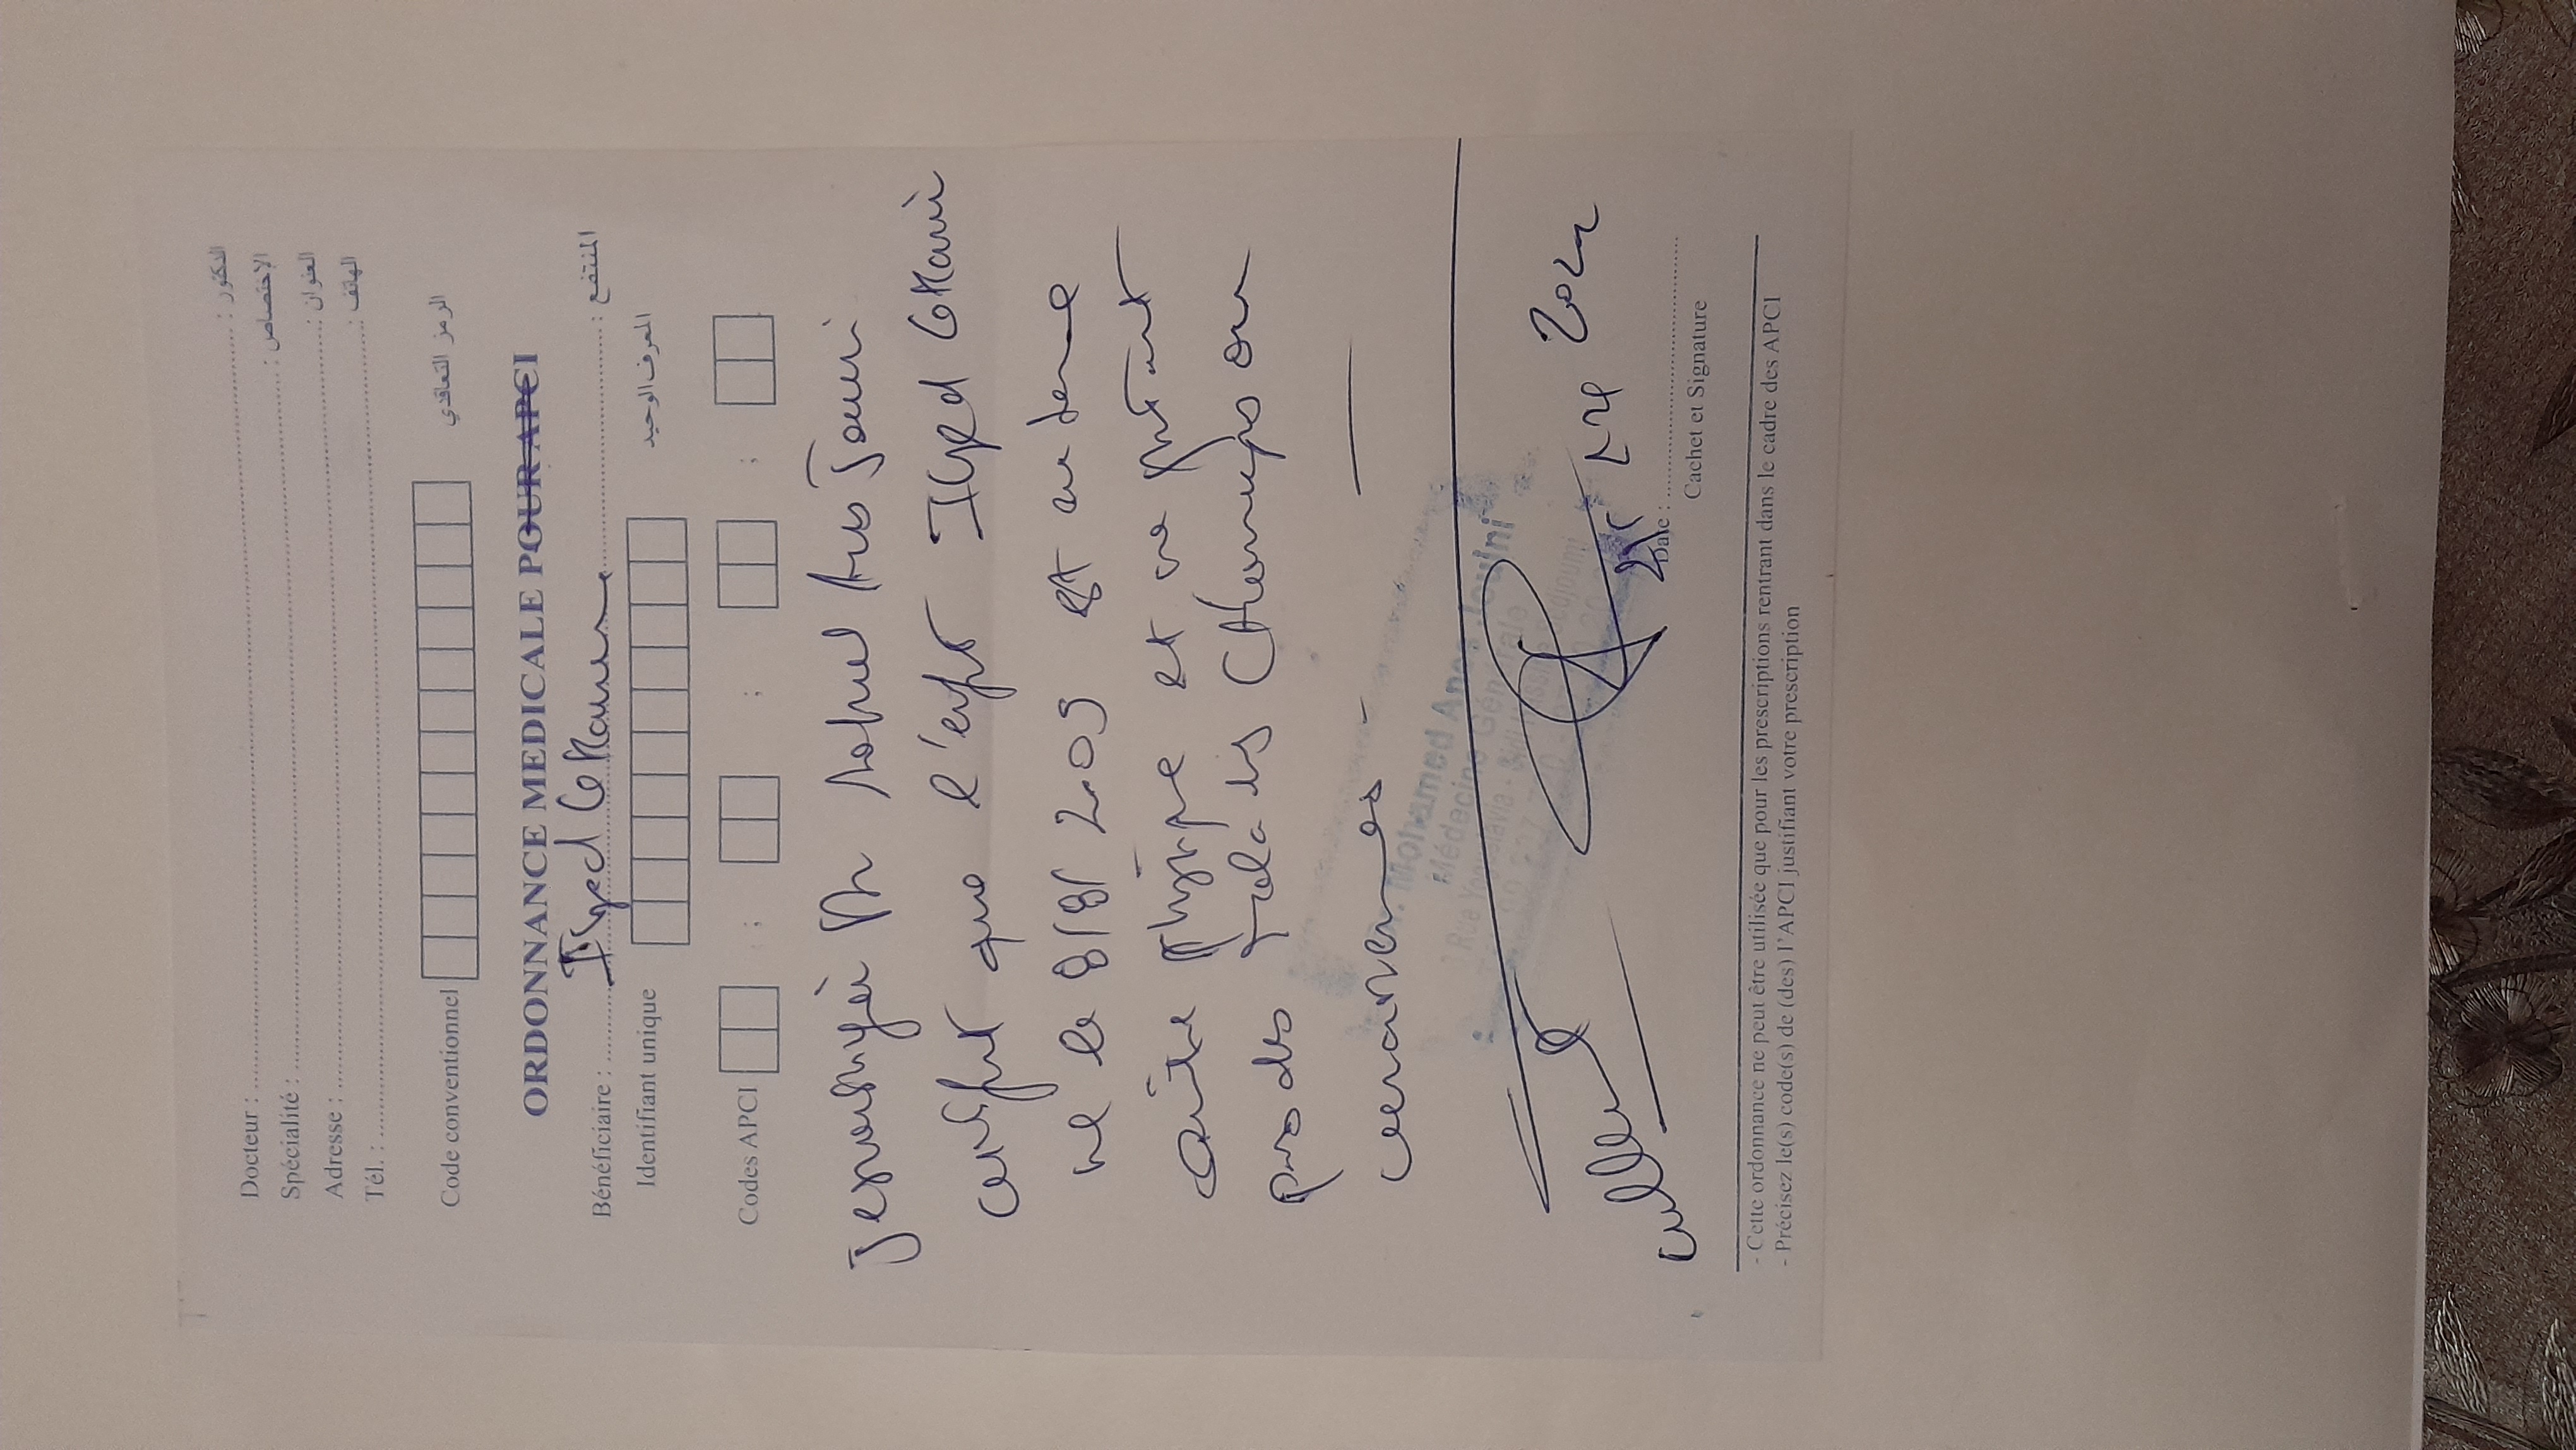 Docteur : الدكتور :
Spécialité : الإختصاص :
Adresse : العنوان :
Tél. : الهاتف :
Code conventionnel الرمز التعاقدي
ORDONNANCE MEDICALE POUR APCI
Bénéficiaire : Iyed : المنتفع
Identifiant unique المعرف الوحيد
Codes APCI ; ; ;
Je soussigné Dr Mohamed Anes Jouini
certifie que l'enfant Iyed
né le 8/8/2009 est en bonne
santé physique et ne présent
pas des maladies chroniques ou
Dr. Mohamed Anes Jouini
Médecine Générale
Date : 2022
Cachet et Signature
- Cette ordonnance ne peut être utilisée que pour les prescriptions rentrant dans le cadre des APCI
- Précisez le(s) code(s) de (des) l'APCI justifiant votre prescription